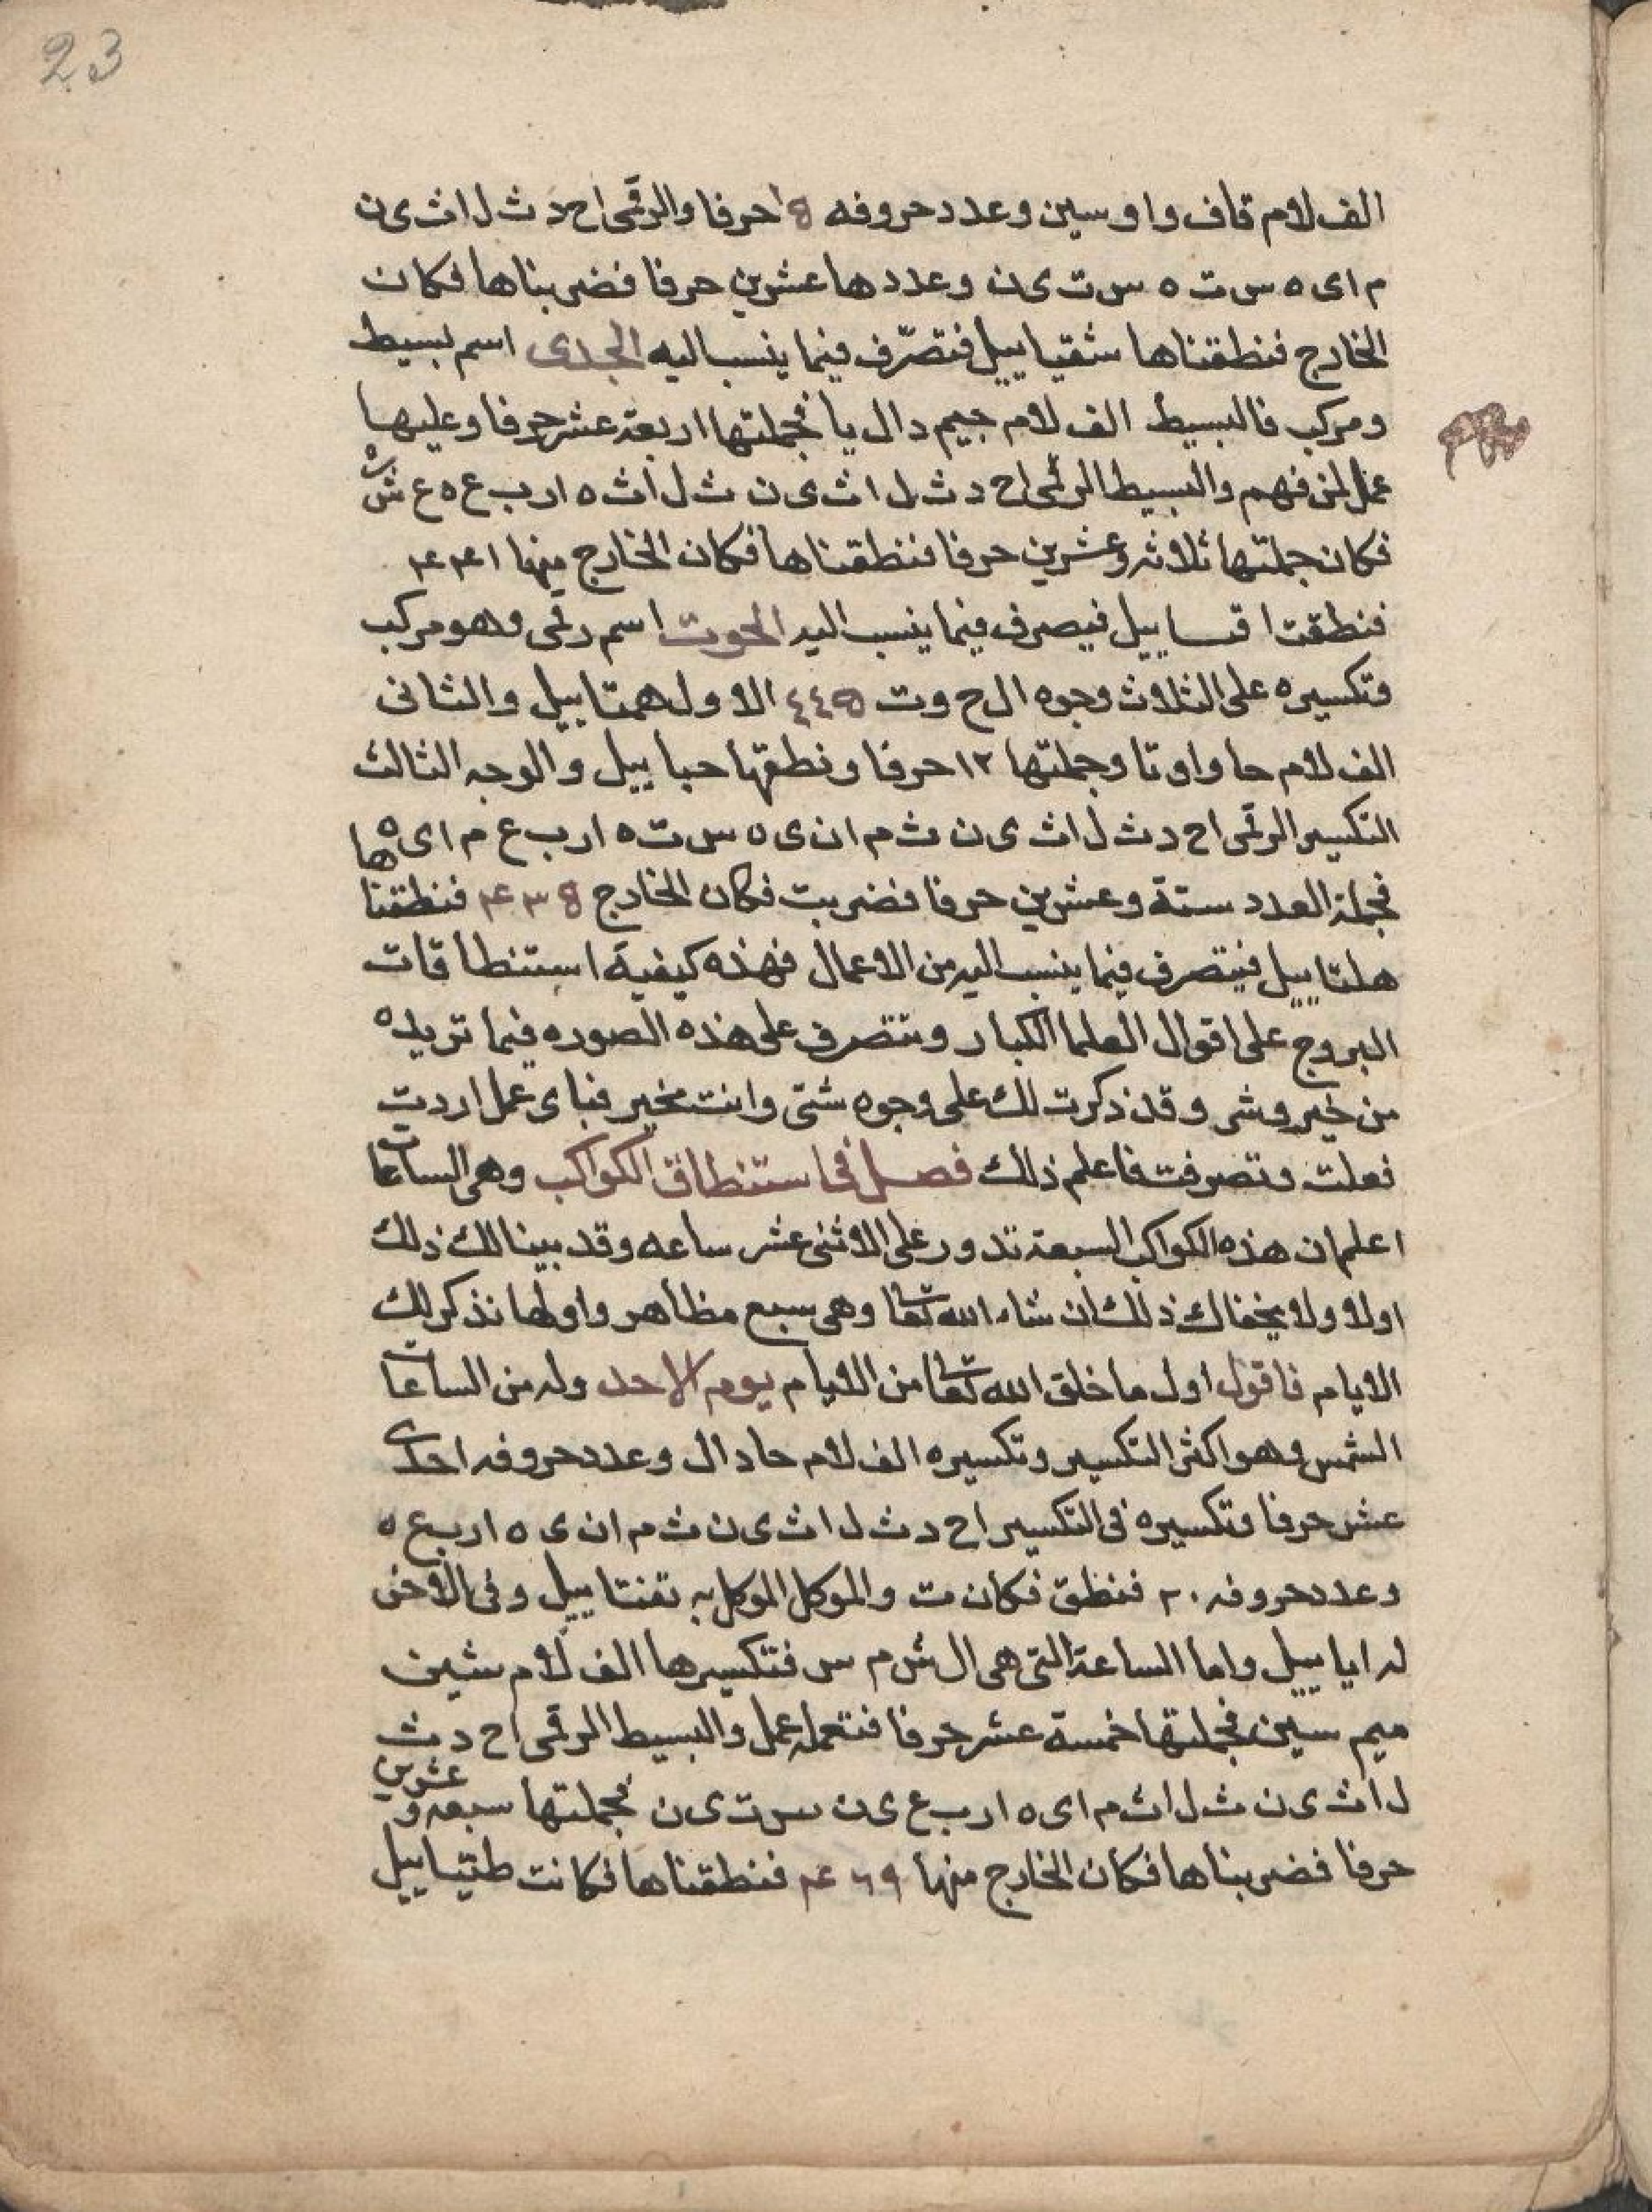 23
الف لام قاف واو سين وعدد حروفه ١٥ حرفا والرقمى اح د ث ل اث ى ن
م اى ه س ت ه س ت ى ن وعددها عشرين حرفا فضربناها فكان
الخارج فنطقناها شقياييل فتصرّف فيما ينسب اليه الجدى اسم بسيط
ومركب فالبسيط الف لام جيم دال يا فجملتها اربعة عشر حرفا وعليها
عمل لمن فهم والبسيط الرقمى اح د ث ل اث ى ن ث ل اث ه ارب ع ه ع ش ره
فكان جملتها ثلاثه وعشرين حرفا فنطقناها فكان الخارج منها ٤٤١
فنطقت اقساييل فيصرف فيما ينسب اليه الحوت اسم رقمى وهو مركب
وتكسيره على الثلاث وجوه ال ح وت ٤٤٥ الاول همتاييل والثانى
الف لام حا واو تا وجملتها ١٢ حرفا ونطقها حباييل والوجه الثالث
التكسير الرقمى اح د ث ل اث ى ن ث م ان ى ه س ت ه ارب ع م اى ه
فجملة العدد ستة وعشرين حرفا فضربت فكان الخارج ٤٣٥ فنطقناها
هلتاييل فيتصرف فيما ينسب اليه من الاعمال فهذه كيفية استنطاقات
البروج على اقوال العلما الكبار وتتصرف على هذه الصوره فيما تريده
من خير وشر وقد ذكرت لك على وجوه شتى وانت مخير فباى عمل اردت
فعلت وتصرفت فاعلم ذلك فصل فى استنطاق الكواكب وهى الساعات
اعلم ان هذه الكواكب السبعة تدور على الاثنى عشر ساعه وقد بينا لك ذلك
اولا ولا يخفاك ذلك ان شاء الله تعا وهى سبع مظاهر واولها نذكر لك
الايام فاقول اول ما خلق الله تعا من الايام يوم الاحد وله من الساعات
الشمس وهو اكثر التكسير وتكسيره الف لام حا دال وعدد حروفه احدى
عشر حرفا وتكسيره فى التكسير اح د ث ل اث ى ن ث م ان ى ه ارب ع ه
وعدد حروفه ٢٠ فنطق فكان مت والموكل الموكل به تفنتاييل وفى الاخنى
له اياييل واما الساعة التى هى ال ش م س فتكسيرها الف لام شين
ميم سين فجملتها خمسة عشر حرفا فتعمل عمل والبسيط الرقمى اح د ث
ل اث ى ن ث ل اث م اى ه ارب ع ى ن س ت ى ن فجملتها سبعه وعشرين
حرفا فضربناها فكان الخارج منها ٤٦٩ فنطقناها فكانت طتياييل